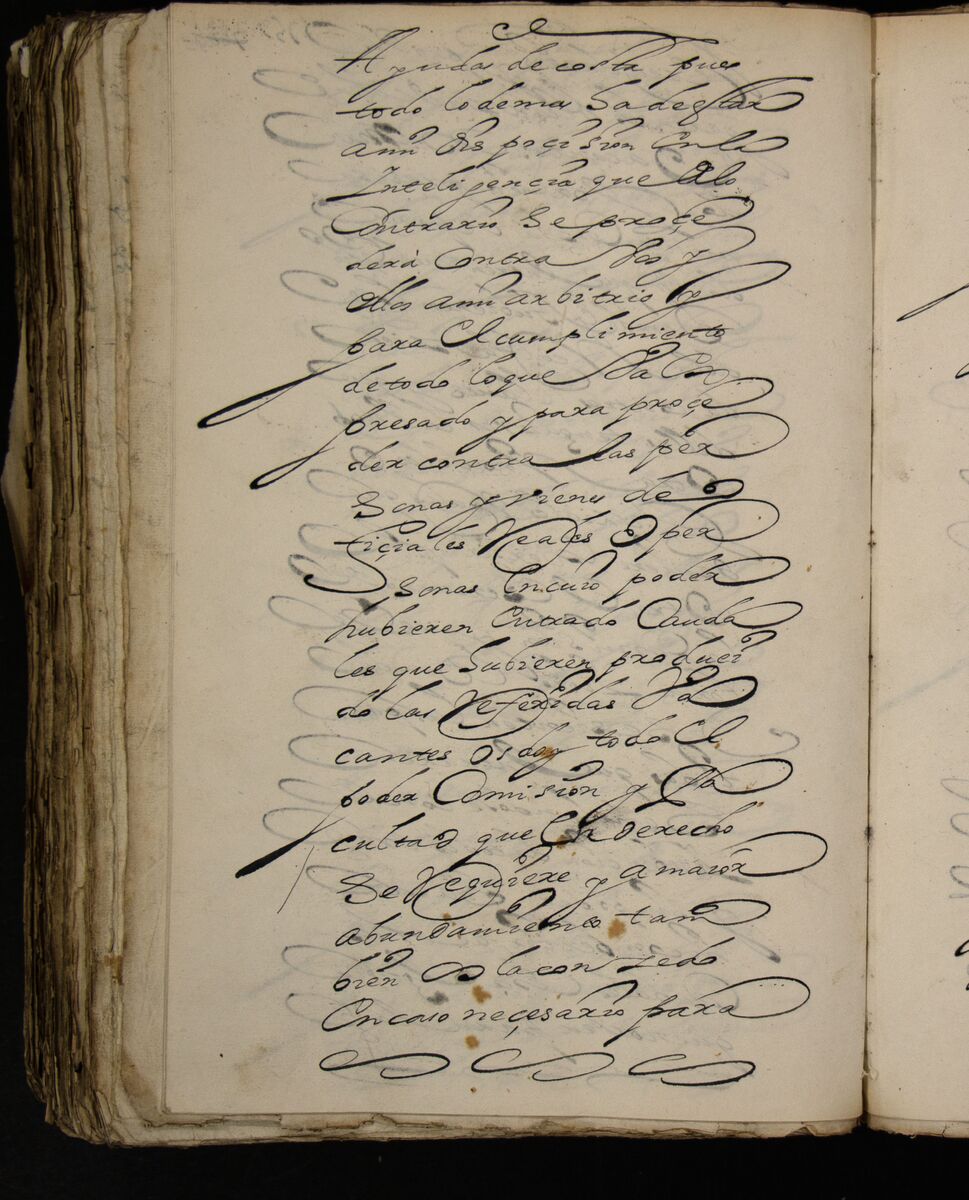 Ayudas de costa pues
todo lo demas ha de estar
a mi dispoçision en la
Inteligençia que de lo
Contrario se proçe
derà contra Vos y
ellos a mi arbitrio y
para el cumplimiento
de todo lo que Va ex
presado y para proçe
der contra las per
sonas y vienes de o
fiçiales Reales o per
sonas en cuio poder
hubieren entrado Cauda
les que hubieren produci
do las Referidas Va
cantes os doy todo el
poder Comision y fa
cultad que en derecho
se Requiere y a maior
abundamiento tam
bien os la conzedo
En caso neçesario para